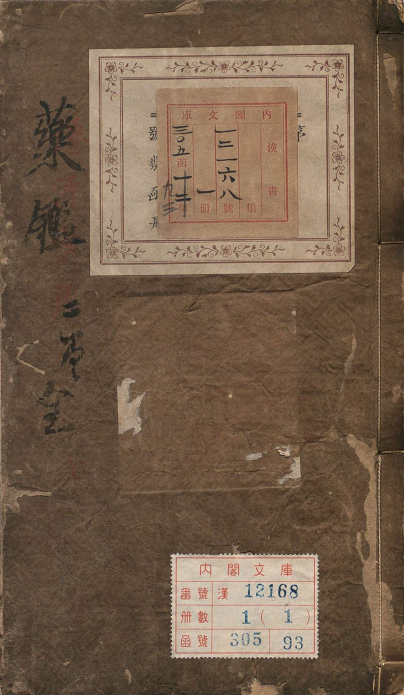 藥鑑 二卷全
内閣文庫
漢書
一二一六八
號
類
一
三〇五
函
九三
内閣文庫
番號 漢 12168
册數 1 ( 1 )
函號 305 93